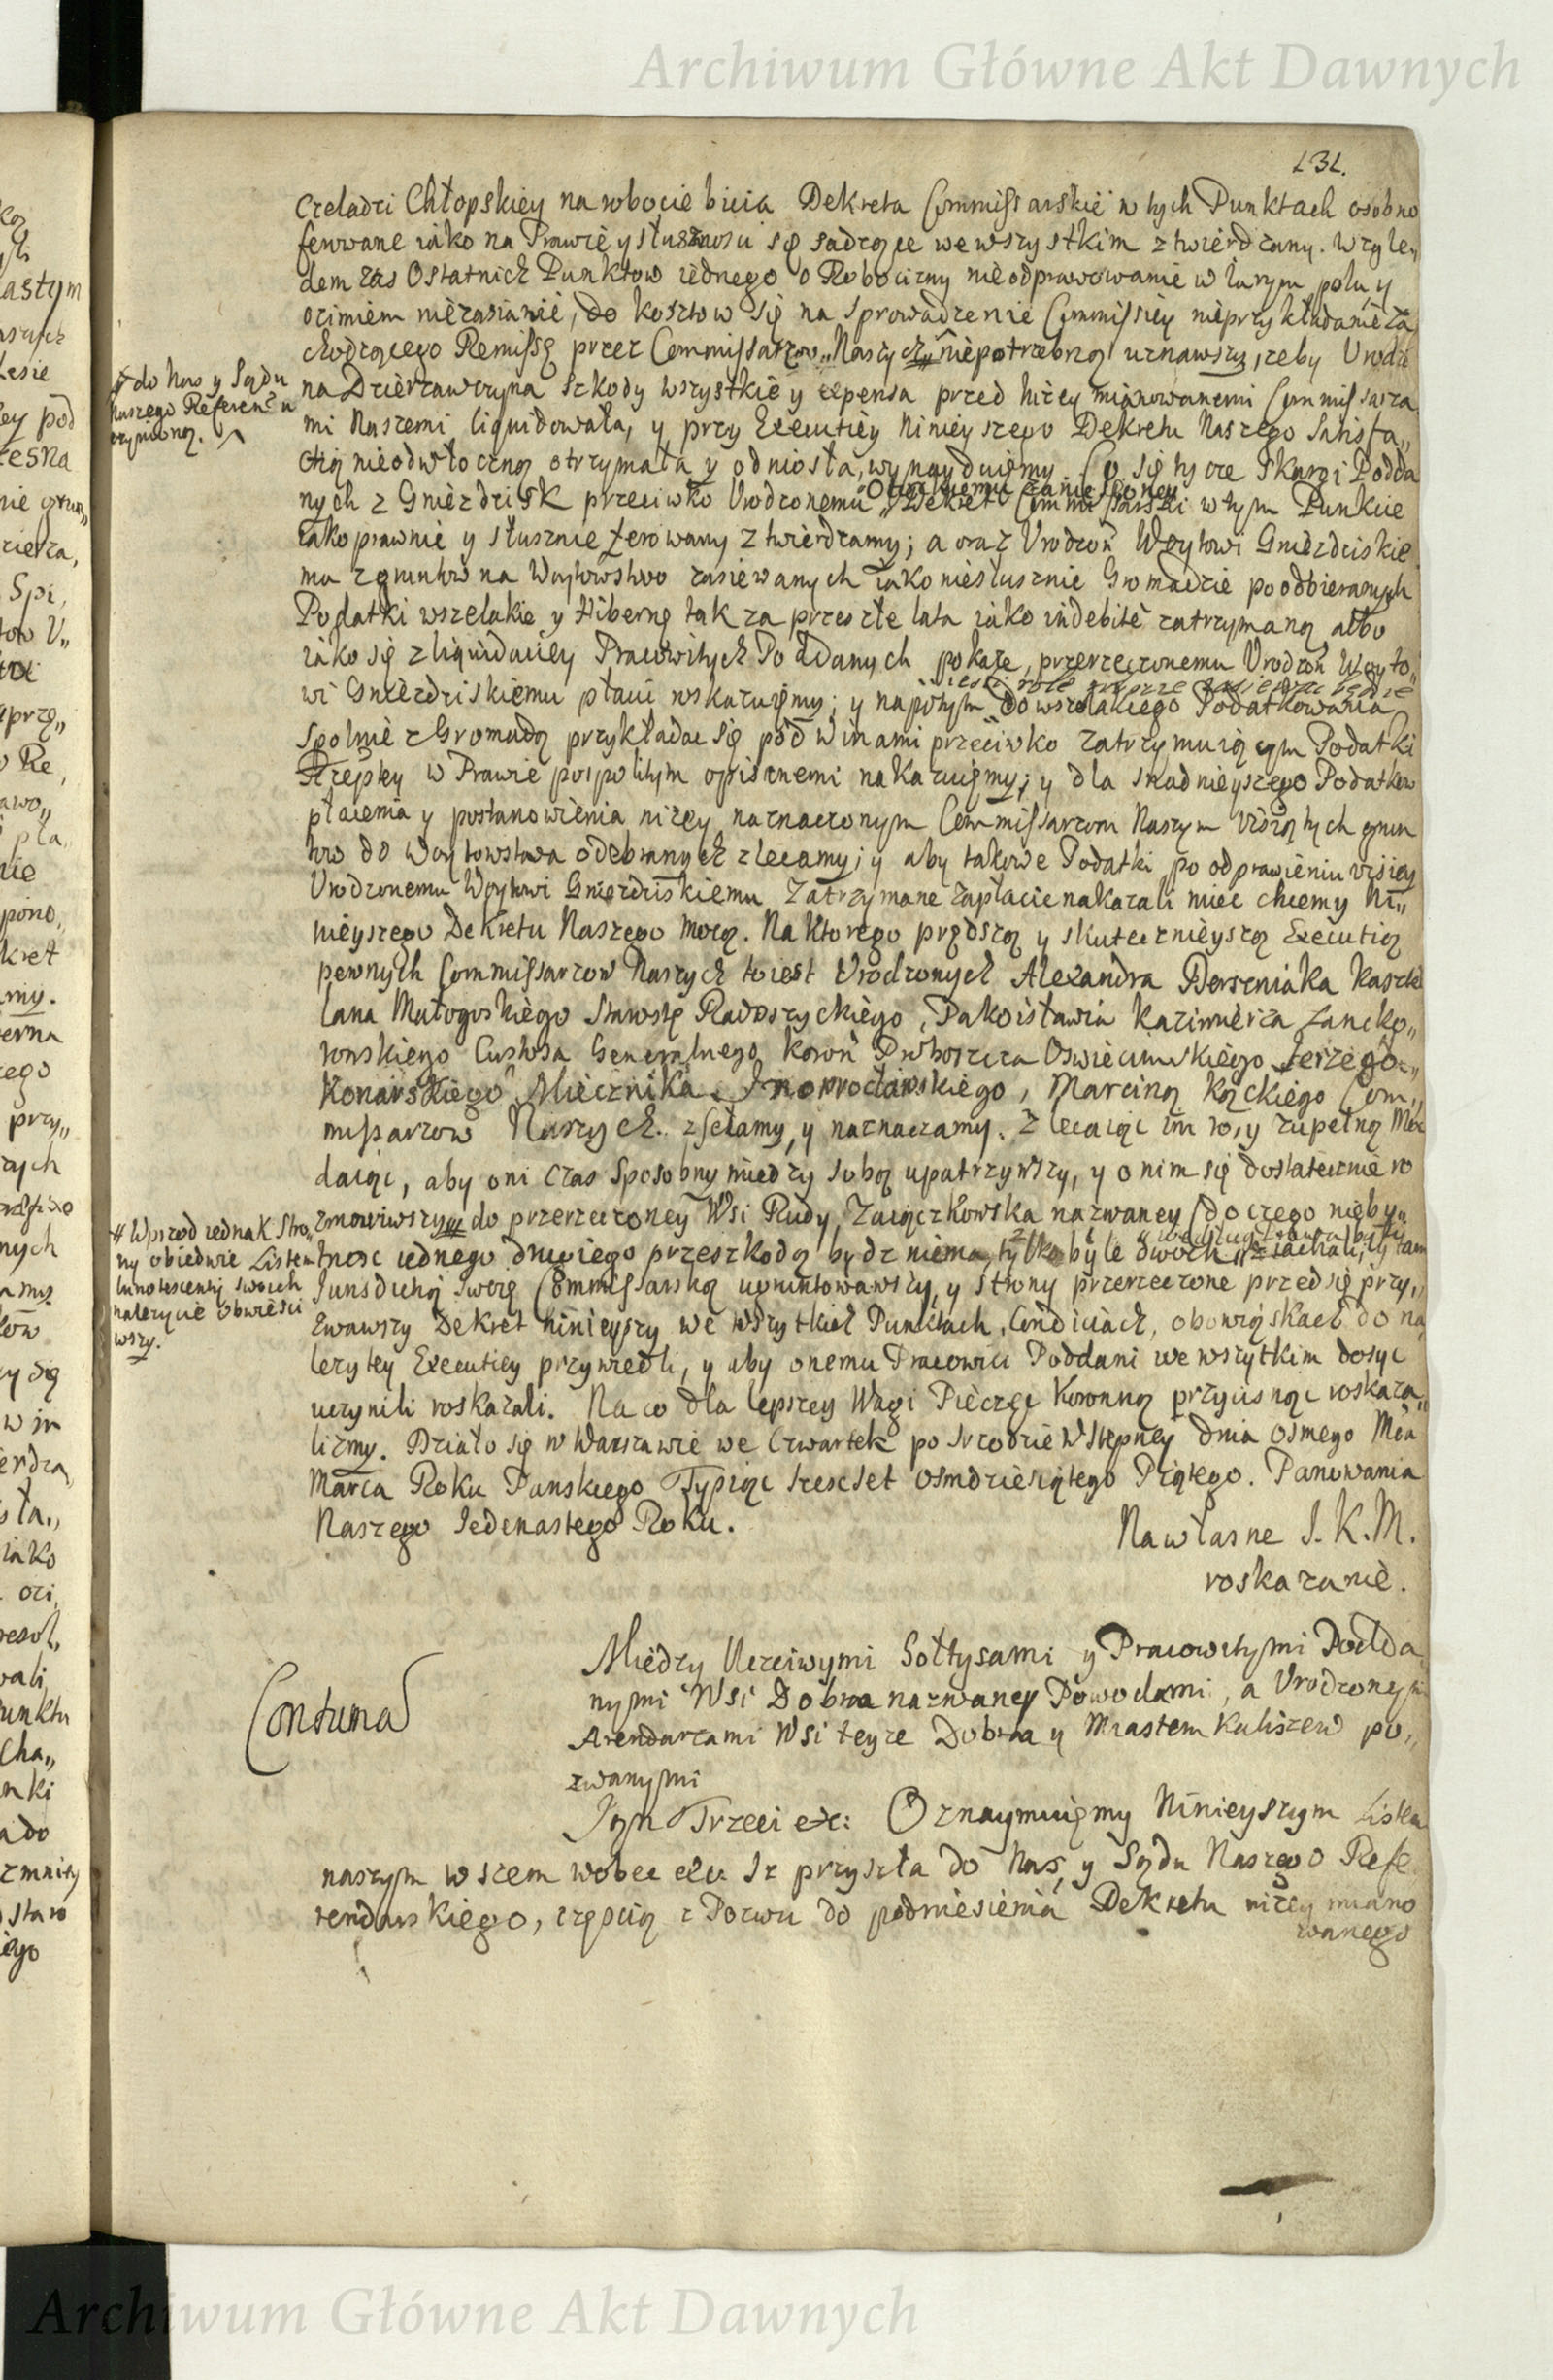 Archiwum Główne Akt Dawnych
131.
Czeladzi Chłopskiey na robocie bicia Dekreta Commissarskie w tych Punktach osobno
ferowane iako na Prawie y słusznosci się sadzące we wszystkim ztwierdzamy. Wzglę„
dem zas Ostatnich Punktow iednego o Robocizny nieodprawowanie w Jarym polu, y
ozimiem niezasianie, do kosztow się na sprowadzenie Commissiey nieprzykładanie za
chodzącego Remissę przez Commissarzow „Naszych„ niepotrzebną uznawszy, zeby Urodzo
na Dzierzawczyna szkody wszystkie y expensa przed niżey mianowanemi Commissarza
mi Naszemi liquidowała, y przy Executiey Ninieyszego Dekretu Naszego Satisfa„
ctią nieodwłoczną otrzymała y odniosła, wynayduiemy. Co się tycze Skargi Podda
nych z Gniezdzisk przeciwko Urodzonemu
Dekret Commissarski w tym Punkcie
iako prawnie y słusznie ferowany ztwierdzamy; a oraz Urodzon Woytowi Gniezdziskie
mu z gruntow na Woytowstwo zasiewanych iako niesłusznie Gromadzie poodbieranych
Podatki wszelakie y Hibernę tak za przeszłe lata iako indebite zatrzymaną albo
iako się z liquidaciey Pracowitych Poddanych pokaże, przerzeczonemu Urodzon Woyto„
wi Gniezdziskiemu płacic wskazuiemy; y napotym do wszelakiego Podatkowania
Spolnie z Gromadą przykładac się pod winami przeciwko zatrzymuiącym Podatki
w Prawie pospolitym opisanemi nakazuiemy; y dla snadnieyszego Podatkow
płacenia y postanowienia niżey naznaczonym Commissarzom Naszym wisią tych grun
tow do Woytowstwa odebranych zlecamy; y aby takowe Podatki po odprawieniu wisiey
Urodzonemu Woytowi Gniezdziskiemu zatrzymane zapłacic nakazali miec chcemy Ni„
nieyszego Dekretu Naszego mocą. Na ktorego prędszą y skutecznieyszą Executią
pewnych Commissarzow Naszych to iest Urodzonych Alexandra Derszniaka Kaszte
lana Małogoskiego Starostę Radoszyckiego, Pakosława Kazimierza Lancko„
ronskiego Custosa Generalnego Koron Proboszcza Oswiecimskiego Jerzego
Konarskiego Miecznika Inowrocławskiego, Marcina Kąckiego Com„
missarzow Naszych. zsełamy, y naznaczamy. Zlecaiąc im to, y zupełną Moc
daiąc, aby oni czas sposobny między sobą upatrzywszy, y o nim się dostatecznie ro
zmowiwszy # do przerzeczoney Wsi Rudy Zaiączkowska nazwaney (do czego nieby„
tnosc iednego drugiego przeszkodą bydz niema, tylko byle dwoch ziachali, y tam
Jurisdictią swoię Commissarską ugruntowawszy, y strony przerzeczone przed się przy„
zwawszy Dekret ninieyszy we wszytkich Punktach, Conditiach, obowiąskach do na
lezytey Executiey przywiedli, y aby onemu Pracowici Poddani we wszytkim dosyc
uczynili roskazali. Na co dla lepszey Wagi Pieczęc Koronną przycisnąc roskaza„
lizmy. Działo się w Warszawie we Czwartek po Srzodzie Wstępney dnia osmego Mca
Marca Roku Panskiego Tysiąc szescset osmdziesiątego Piątego. Panowania
Naszego Iedenastego Roku.
Na własne J. K. M.
roskazanie.
do Nas y Sądu
Naszego Referend
uczynioną.
# Wprzod iednak Stro„
ny obiedwie Listem
Innotescentij swoich
nalezycie obwiesci
wszy.
Contuma
Między Uczciwymi Sołtysami y Pracowitymi Podda
nymi Wsi Dobra nazwaney Powodami, a Urodzonymi
Arendarzami Wsi teyze Dobra y Miastem Kuliszew po„
zwanymi
Jan Trzeci etc: Oznaymuiemy Ninieyszym Listem
naszym wszem wobec etc. Iz przyszła do Nas, y Sądu Naszego Refe
rendarskiego, częscią z Pozwu do podniesienia Dekretu niżey miano
wanego
Archiwum Główne Akt Dawnych